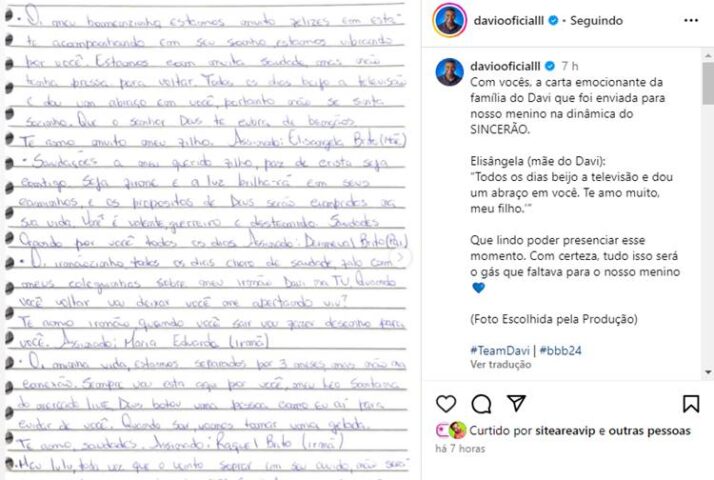 • Oi meu homenzinho estamos muito felizes em está
te acompanhando com seu sonho, estamos vibrando
por você. Estamos com muita saudade, mas não
tenha pressa para voltar. Todos os dias beijo a televisão
e dou um abraço em você, portanto não se sinta
sozinho. Que o senhor Deus te cubra de bençãos.
Te amo muito meu filho. Assinado: Elisangela Brito (Mãe)
• Saudações a meu querido filho, paz de cristo seja
contigo. Seja firme e a luz brilhará em seus
caminhos, e os propositos de Deus serão cumpridos na
sua vida. Você é valente, guerreiro e destemido. Saudades
Orando por você todos os dias Assinado: Demerval Brito (Pai)
• Oi irmãozinho, todos os dias choro de saudade, falo com
meus coleguinhas sobre meu irmão Davi na TV. Quando
você voltar vou deixar você me apertando viu?
Te amo irmão, quando você sair vou fazer desenho para
você. Assinado: Maria Eduarda (irmã)
• Oi minha vida, estamos separados por 3 meses, mas não na
conexão. Sempre vou esta aqui por você, meu Léo Santana
do mercado livre. Deus botou uma pessoa como eu aí para
cuidar de você. Quando sair, vamos tomar uma gelada.
Te amo, saudades. Assinado: Raquel Brito (irmã)
• Meu lulu, toda vez que o vento soprar em seu ouvido, não será
daviooficialll • Seguindo
daviooficialll 7 h
Com vocês, a carta emocionante da
família do Davi que foi enviada para
nosso menino na dinâmica do
SINCERÃO.
Elisângela (mãe do Davi):
“Todos os dias beijo a televisão e dou
um abraço em você. Te amo muito,
meu filho.’”
Que lindo poder presenciar esse
momento. Com certeza, tudo isso será
o gás que faltava para o nosso menino
💙
(Foto Escolhida pela Produção)
#TeamDavi | #bbb24
Ver tradução
Curtido por siteareavip e outras pessoas
há 7 horas